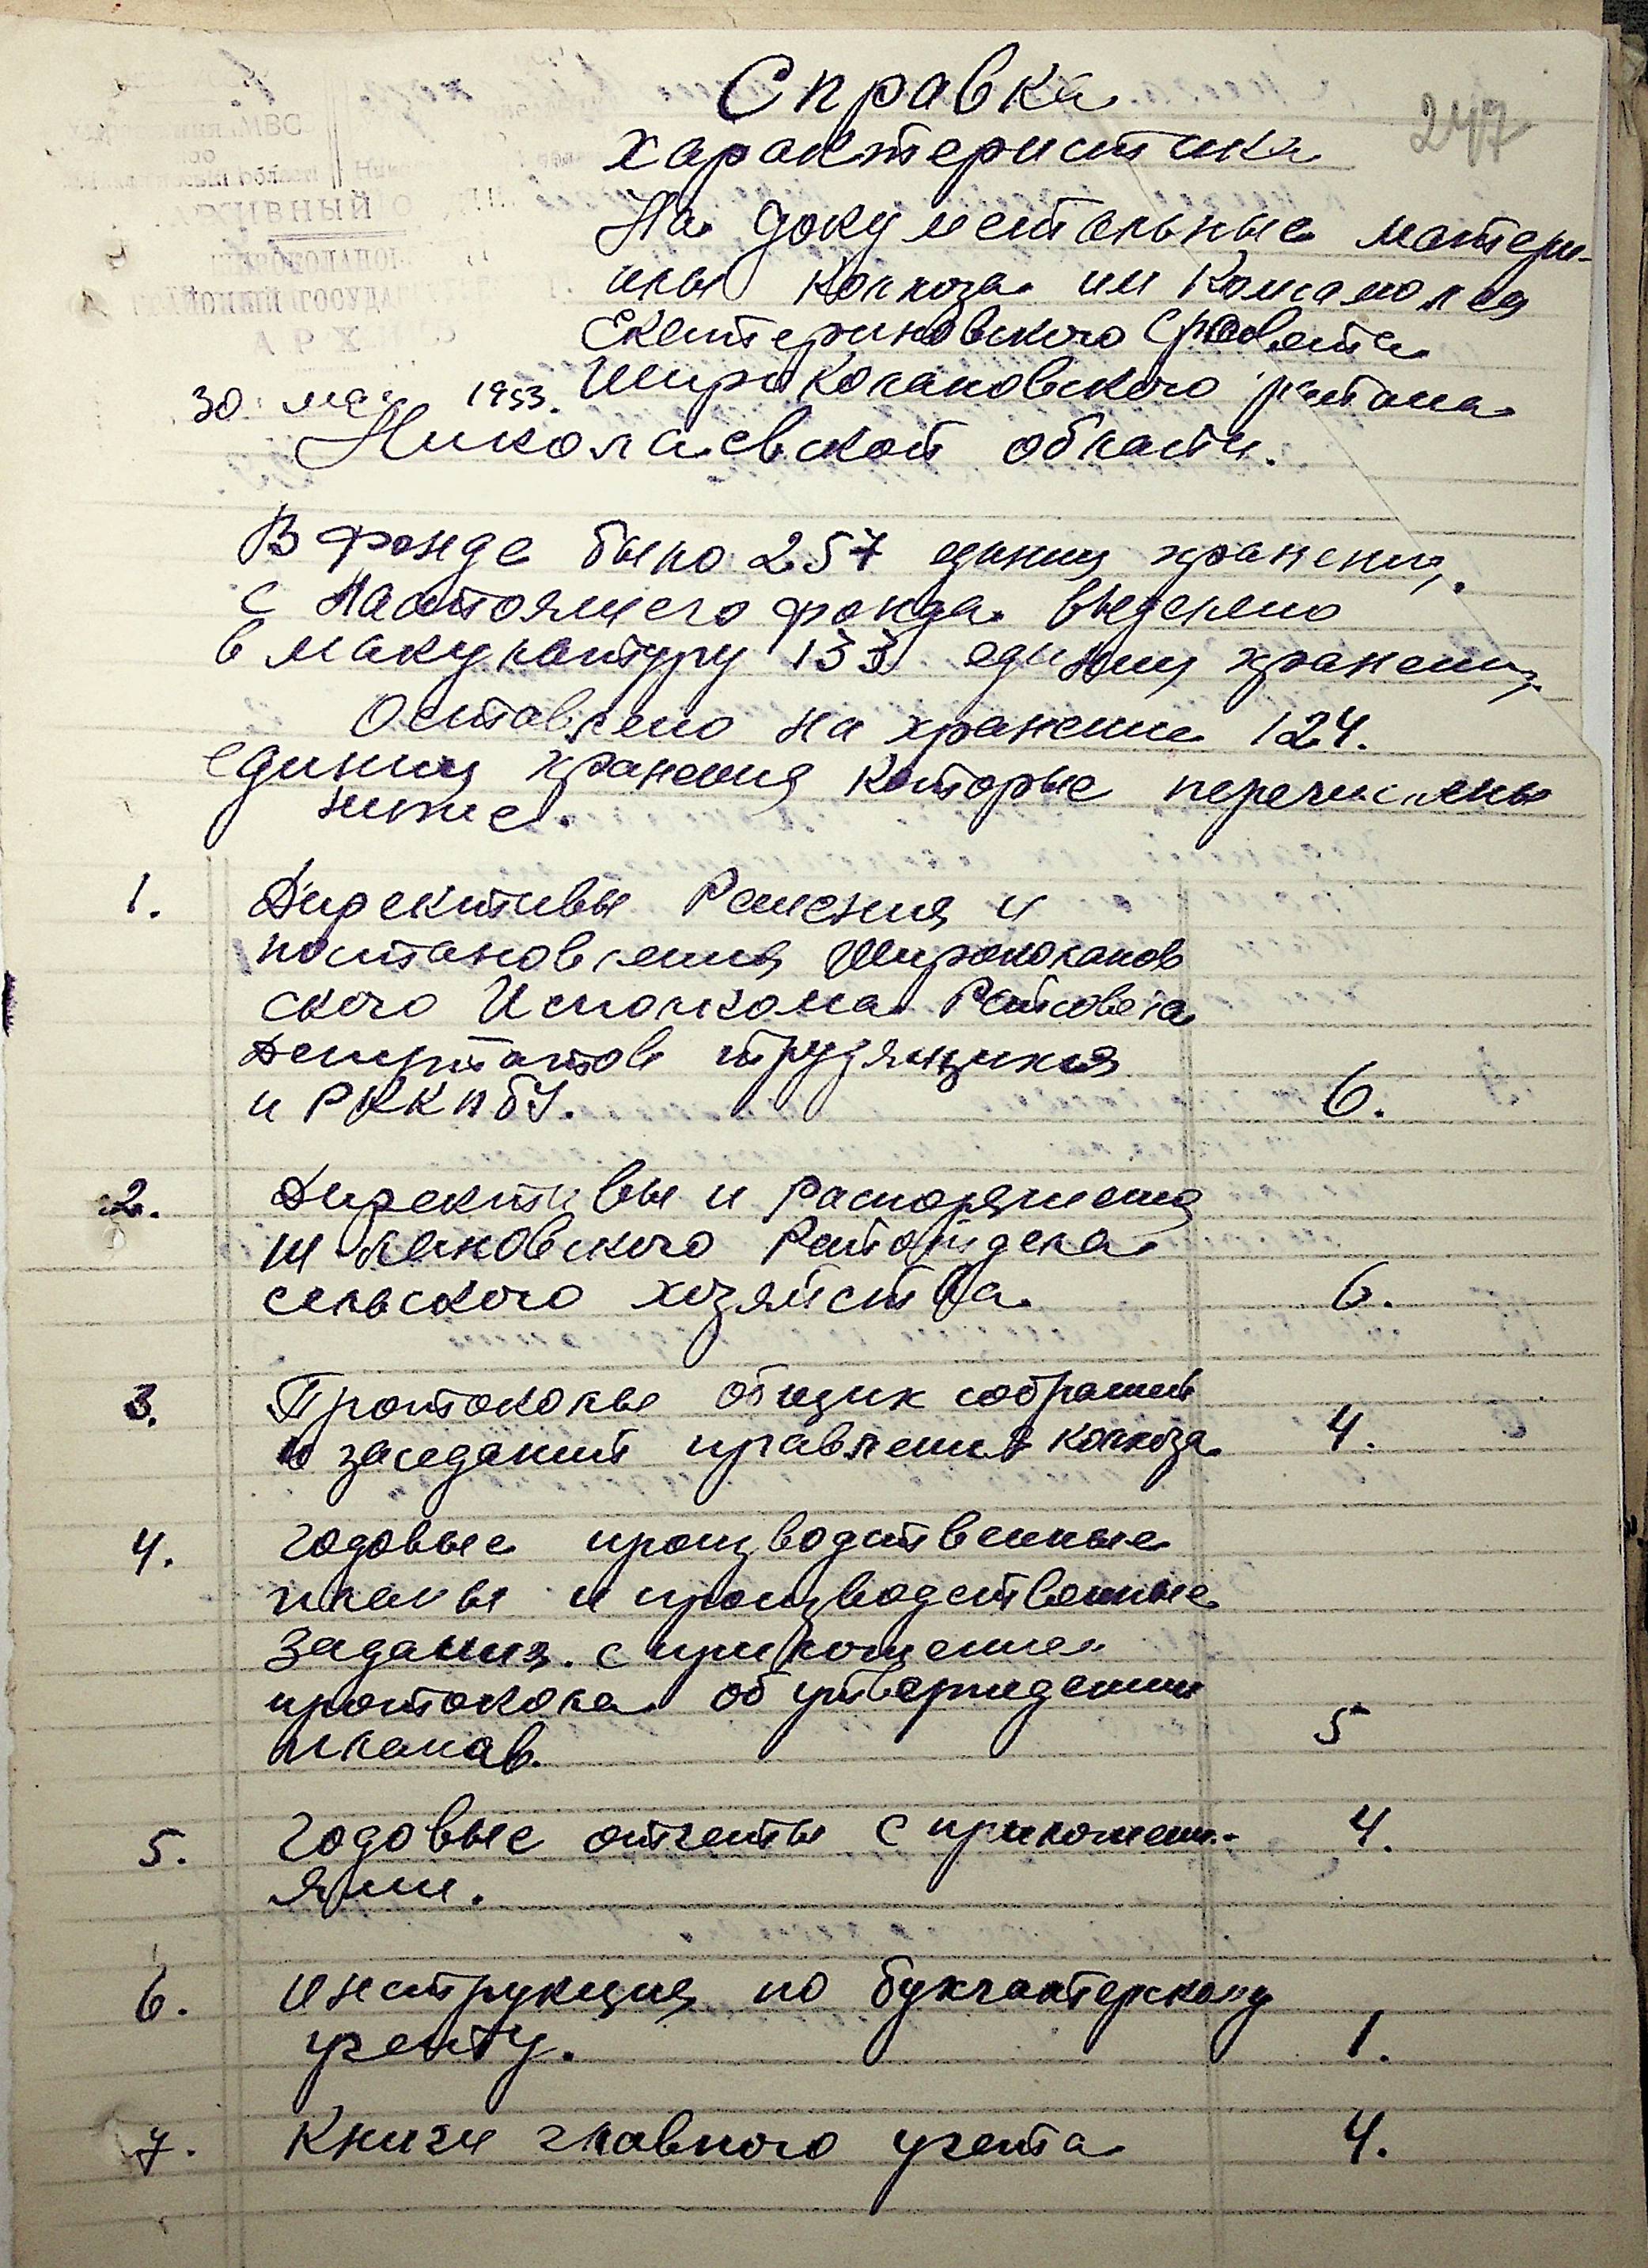 247
Справка
характеристика
На документальные матери-
алы колхоза им Комсомольца
Екатериновского с/совета
30 мая 1953. Широколановского района
Николаевской области.
АРХИВНЫЙ
РАЙОННЫЙ ГОСУДА
АРХ
В фонде было 257 единиц хранения,
с настоящего фонда выделено
в макулатуру 133 единиц хранения,
Оставлено на хранение 124.
единиц хранения которые перечислены
ниже.
1. Директивы Решения и
постановления Широколанов
ского Исполкома Райсовета
Депутатов трудящихся
и РККПбУ. 6.
2. Директивы и Распоряжения
Ш-лановского Райотдела
сельского хозяйства. 6.
3. Протоколы общих собраний
и заседаний правления колхоза. 4.
4. Годовые производственные
планы и производственные
задания. с приложением
протокола об утверждении
планов. 5
5. Годовые отчеты с приложени- 4.
ями.
6. Инструкция по бухгалтерскому
учету. 1.
7. Книги главного учета 4.